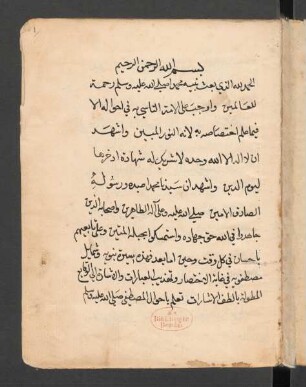 بسم الله الرحمن الرحيم
الحمد لله الذي بعث نبيه محمدا صلى الله عليه وسلم رحمة
للعالمين واوجب على الامة التاسي به في احواله الا
فيما علم اختصاصه به لانه النور المبين واشهد
ان لا اله الا الله وحده لا شريك له شهادة ادخرها
ليوم الدين واشهد ان سيدنا محمدا عبده ورسوله
الصادق الامين صلى الله عليه وعلى آله الطاهرين واصحابه الذين
جاهدوا في الله حق جهاده واستمسكوا بحبله المتين وعلى تابعيهم
باحسان في كل وقت وحين اما بعد فهذه سيرة نبوية وشمائل
مصطفوية في غاية الاختصار وتهذيب العبارات
المطولة بالطف الاشارات تعلم باحوال المصطفى صلى الله عليه وسلم